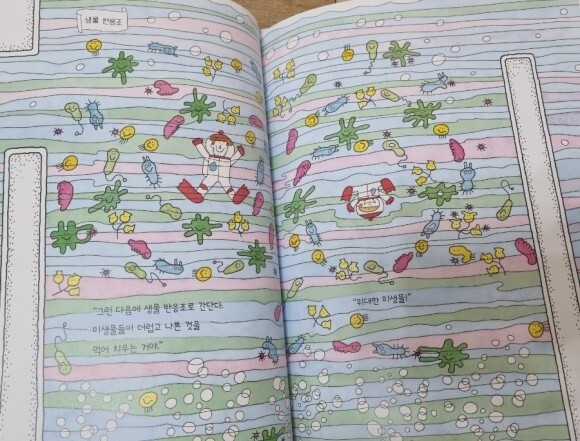 생물 반응조
"그런 다음에 생물 반응조로 간단다.
미생물들이 더럽고 나쁜 것을
먹어 치우는 거야."
"위대한 미생물!"